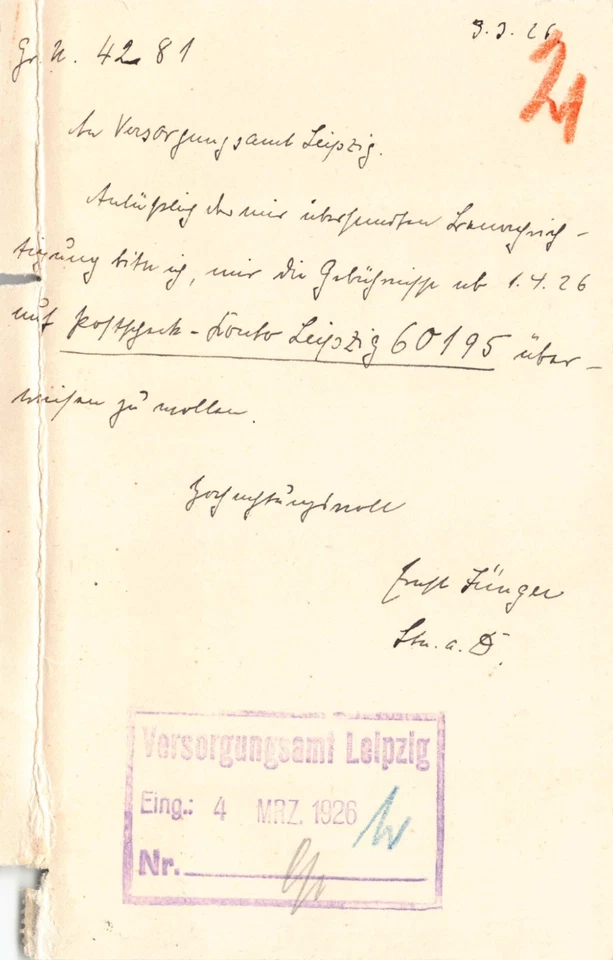 3. 3. 26.
Gr. N. 4281
24
An Versorgungsamt Leipzig.
Anläßlich der mir übersandten Benachrich-
tigung bitte ich, mir die Gebührnisse ab 1. 4. 26
auf Postscheck-Konto Leipzig 60195 über-
weisen zu wollen.
Hochachtungsvoll
Ernst Jünger
Ltn. a. D.
Versorgungsamt Leipzig
Eing.: 4 MRZ. 1926
Nr.